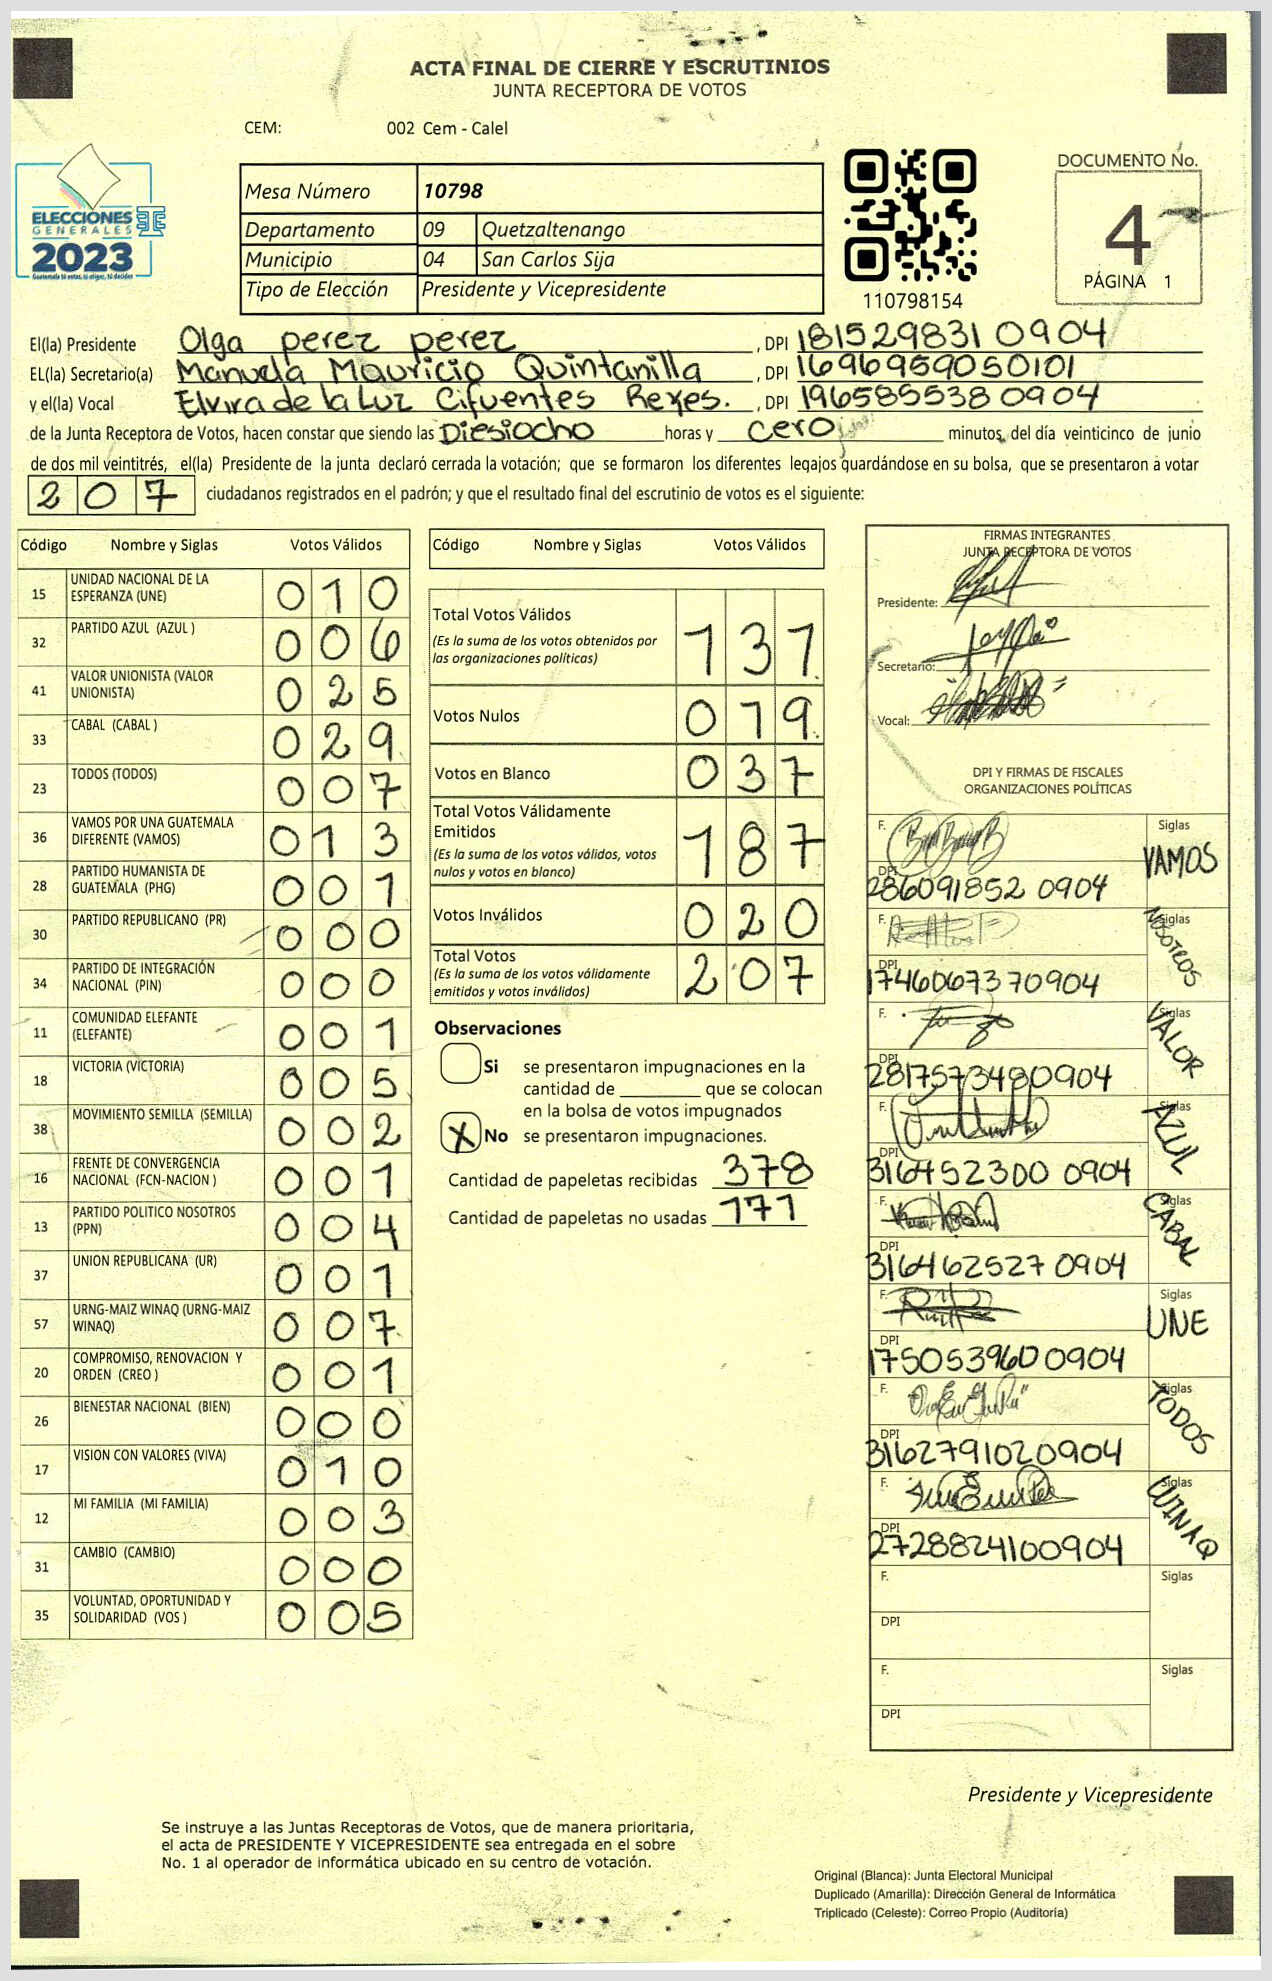 ACTA FINAL DE CIERRE Y ESCRUTINIOS
JUNTA RECEPTORA DE VOTOS
CEM: 002 Cem - Calel
ELECCIONES
GENERALES
2023
Mesa Número 10798
Departamento 09 Quetzaltenango
Municipio 04 San Carlos Sija
Tipo de Elección Presidente y Vicepresidente
110798154
DOCUMENTO No.
4
PÁGINA 1
El(la) Presidente Olga perez perez, DPI 181529831 0904
EL(la) Secretario(a) Manuela Mauricio Quintanilla, DPI 1696959050101
y el(la) Vocal Elvira de la Luz Cifuentes Reyes., DPI 196585538 0904
de la Junta Receptora de Votos, hacen constar que siendo las Diesiocho horas y cero minutos, del día veinticinco de junio
de dos mil veintitrés, el(la) Presidente de la junta declaró cerrada la votación; que se formaron los diferentes legajos guardándose en su bolsa, que se presentaron a votar
207 ciudadanos registrados en el padrón; y que el resultado final del escrutinio de votos es el siguiente:
Código Nombre y Siglas Votos Válidos
15 UNIDAD NACIONAL DE LA ESPERANZA (UNE) 010
32 PARTIDO AZUL (AZUL ) 006
41 VALOR UNIONISTA (VALOR UNIONISTA) 025
33 CABAL (CABAL ) 029
23 TODOS (TODOS) 007
36 VAMOS POR UNA GUATEMALA DIFERENTE (VAMOS) 013
28 PARTIDO HUMANISTA DE GUATEMALA (PHG) 001
30 PARTIDO REPUBLICANO (PR) 000
34 PARTIDO DE INTEGRACIÓN NACIONAL (PIN) 000
11 COMUNIDAD ELEFANTE (ELEFANTE) 001
18 VICTORIA (VICTORIA) 005
38 MOVIMIENTO SEMILLA (SEMILLA) 002
16 FRENTE DE CONVERGENCIA NACIONAL (FCN-NACION ) 001
13 PARTIDO POLITICO NOSOTROS (PPN) 004
37 UNION REPUBLICANA (UR) 001
57 URNG-MAIZ WINAQ (URNG-MAIZ WINAQ) 007
20 COMPROMISO, RENOVACION Y ORDEN (CREO ) 001
26 BIENESTAR NACIONAL (BIEN) 000
17 VISION CON VALORES (VIVA) 010
12 MI FAMILIA (MI FAMILIA) 003
31 CAMBIO (CAMBIO) 000
35 VOLUNTAD, OPORTUNIDAD Y SOLIDARIDAD (VOS ) 005
Código Nombre y Siglas Votos Válidos
Total Votos Válidos 131
(Es la suma de los votos obtenidos por
las organizaciones políticas)
Votos Nulos 019
Votos en Blanco 037
Total Votos Válidamente
Emitidos 187
(Es la suma de los votos válidos, votos
nulos y votos en blanco)
Votos Inválidos 020
Total Votos 207
(Es la suma de los votos válidamente
emitidos y votos inválidos)
Observaciones
Si se presentaron impugnaciones en la
cantidad de ________ que se colocan
en la bolsa de votos impugnados
X No se presentaron impugnaciones.
Cantidad de papeletas recibidas 378
Cantidad de papeletas no usadas 171
FIRMAS INTEGRANTES
JUNTA RECEPTORA DE VOTOS
Presidente:
Secretario:
Vocal:
DPI Y FIRMAS DE FISCALES
ORGANIZACIONES POLÍTICAS
F. Siglas VAMOS
DPI 286091852 0904
F. Siglas NOSOTROS
DPI 1746067370904
F. Siglas VALOR
DPI 2817573480904
F. Siglas AZUL
DPI 316452300 0904
F. Siglas CABAL
DPI 316462527 0904
F. Siglas UNE
DPI 175053960 0904
F. Siglas TODOS
DPI 3162791020904
F. Siglas WINAQ
DPI 2728824100904
F. Siglas
DPI
F. Siglas
DPI
Presidente y Vicepresidente
Se instruye a las Juntas Receptoras de Votos, que de manera prioritaria,
el acta de PRESIDENTE Y VICEPRESIDENTE sea entregada en el sobre
No. 1 al operador de informática ubicado en su centro de votación.
Original (Blanca): Junta Electoral Municipal
Duplicado (Amarilla): Dirección General de Informática
Triplicado (Celeste): Correo Propio (Auditoría)